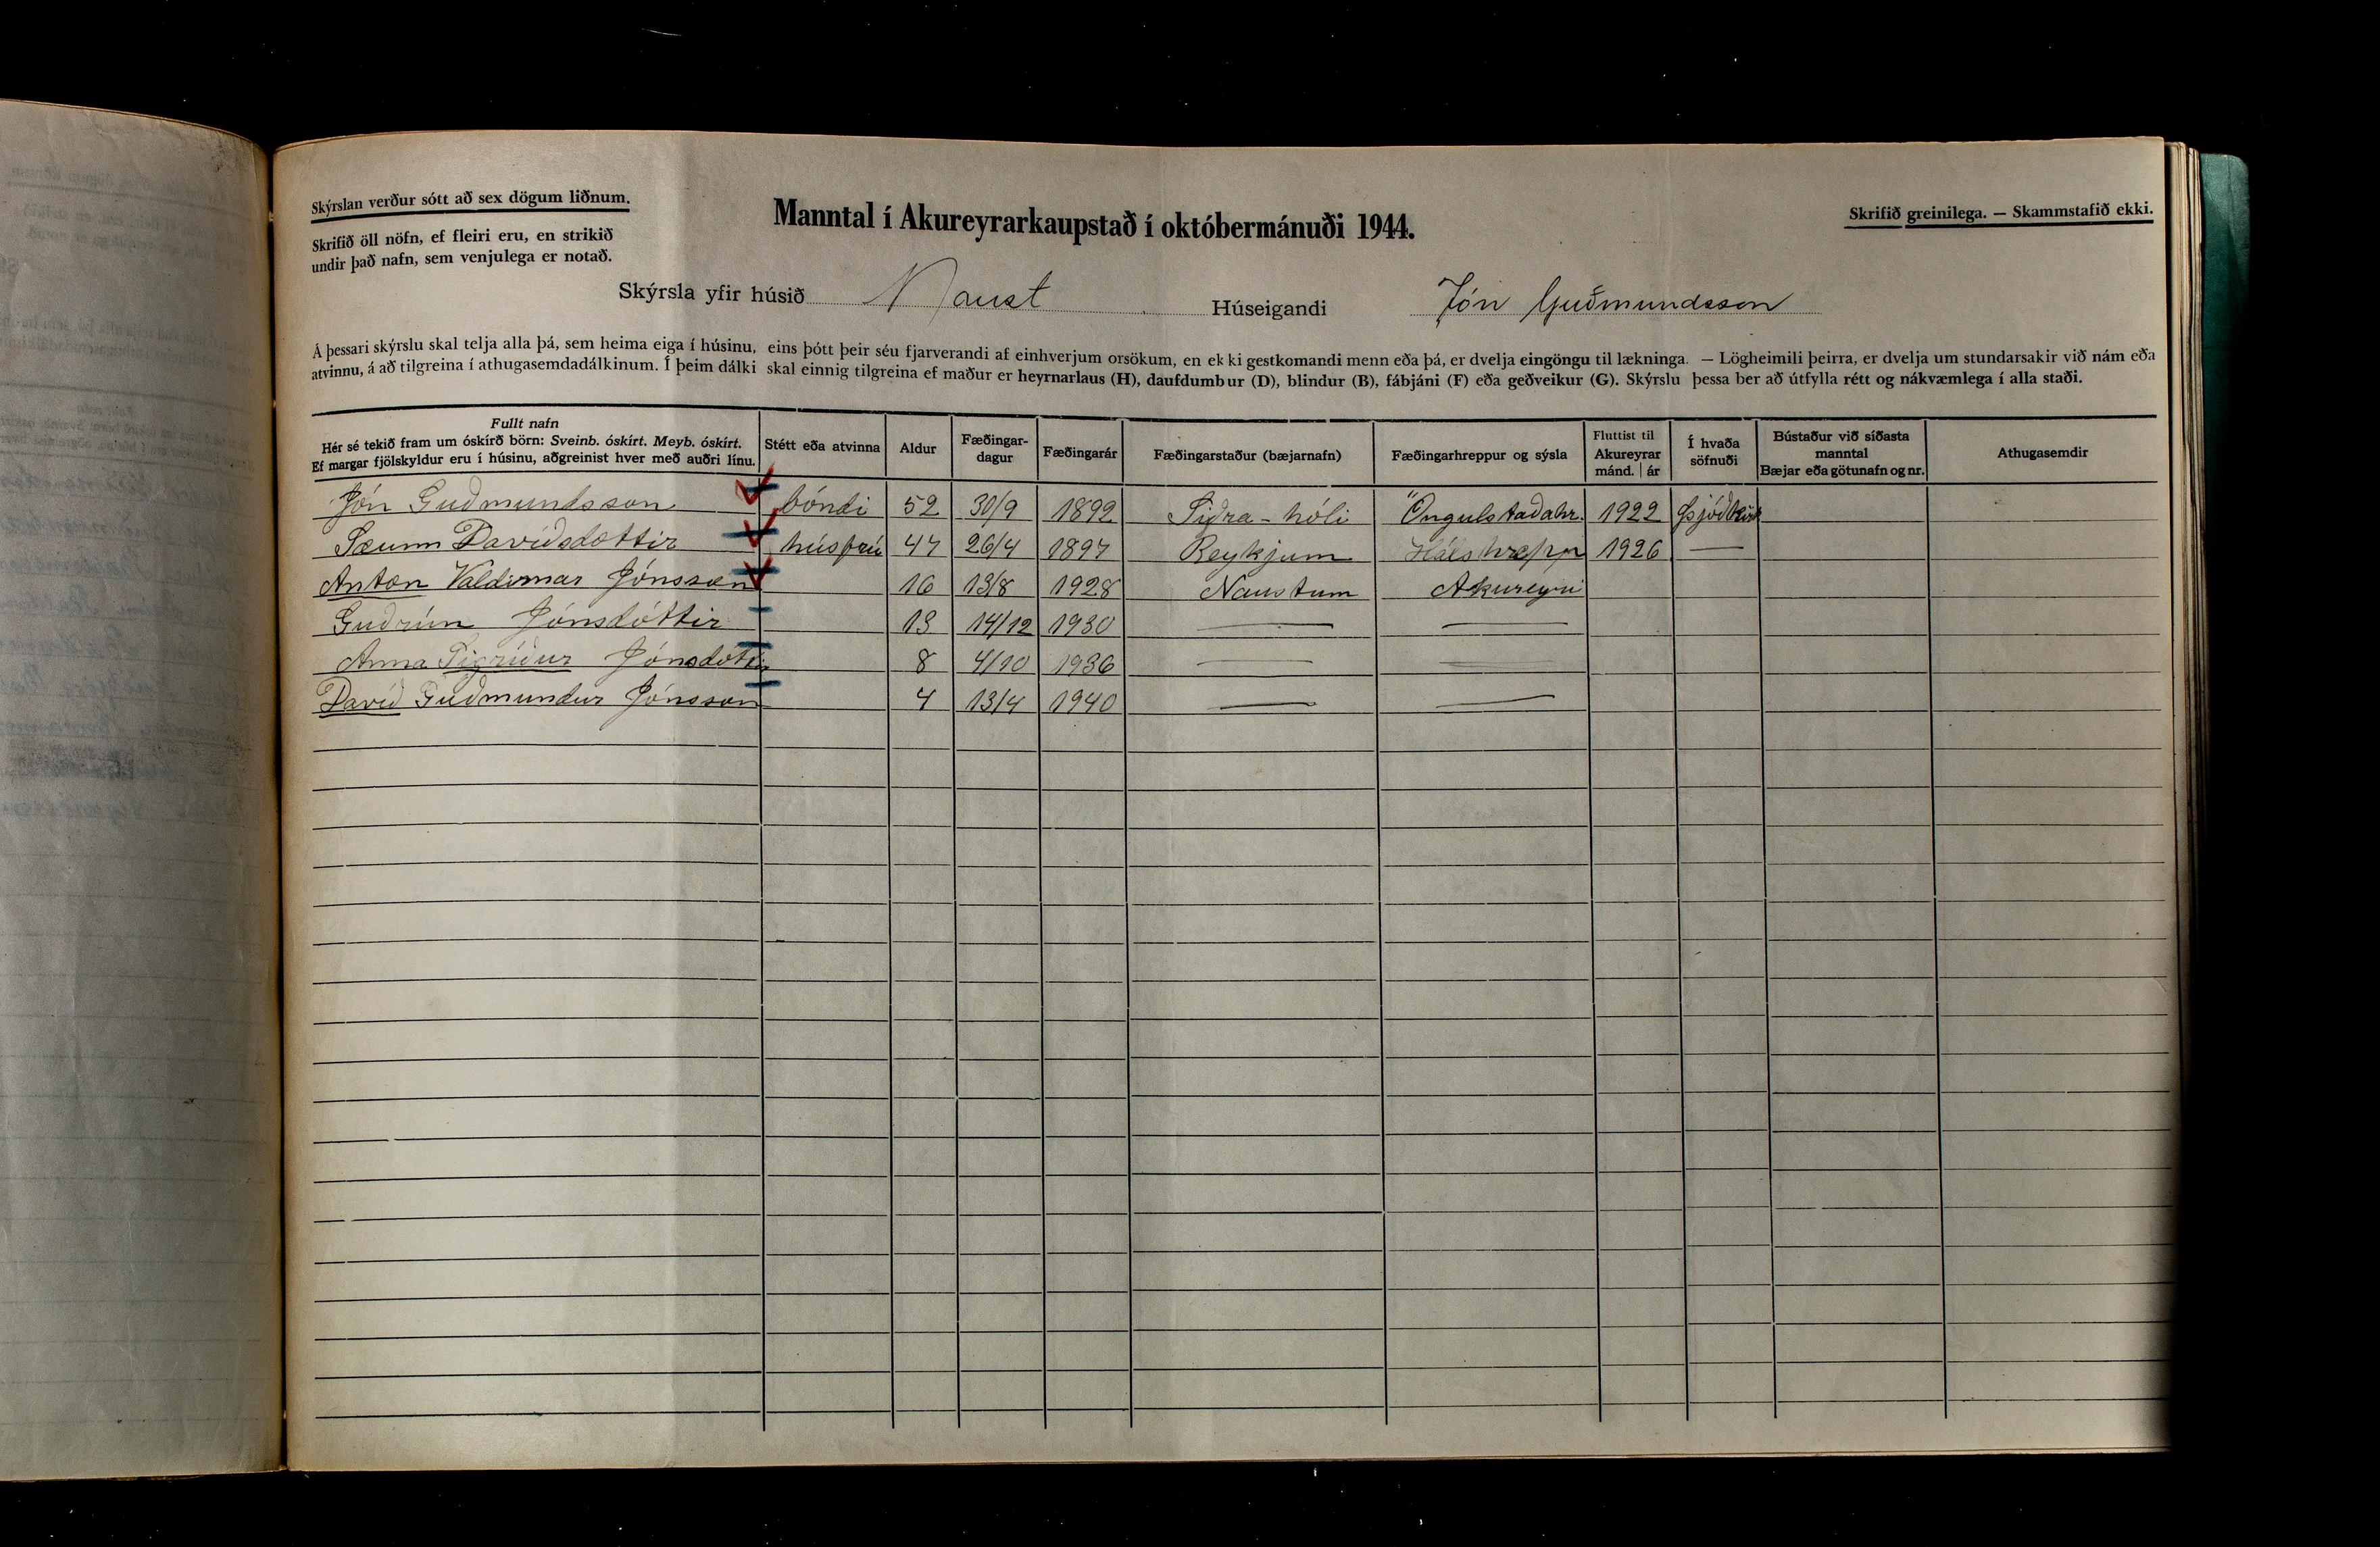 Skýrslan verður sótt að sex dögum liðnum.
Skrifið öll nöfn, ef fleiri eru, en strikið
undir það nafn, sem venjulega er notað.
Manntal í Akureyrarkaupstað í októbermánuði 1944.
Skrifið greinilega. — Skammstafið ekki.
Skýrsla yfir húsið Naust Húseigandi Jón Guðmundsson
Á þessari skýrslu skal telja alla þá, sem heima eiga í húsinu, eins þótt þeir séu fjarverandi af einhverjum orsökum, en ekki gestkomandi menn eða þá, er dvelja eingöngu til lækninga. — Lögheimili þeirra, er dvelja um stundarsakir við nám eða
atvinnu, á að tilgreina í athugasemdadálkinum. Í þeim dálki skal einnig tilgreina ef maður er heyrnarlaus (H), daufdumbur (D), blindur (B), fábjáni (F) eða geðveikur (G). Skýrslu þessa ber að útfylla rétt og nákvæmlega í alla staði.
Fullt nafn
Hér sé tekið fram um óskírð börn: Sveinb. óskírt. Meyb. óskírt.
Ef margar fjölskyldur eru í húsinu, aðgreinist hver með auðri línu.
Stétt eða atvinna
Aldur
Fæðingar-
dagur
Fæðingarár
Fæðingarstaður (bæjarnafn)
Fæðingarhreppur og sýsla
Fluttist til
Akureyrar
mánd. | ár
Í hvaða
söfnuði
Bústaður við síðasta
manntal
Bæjar eða götunafn og nr.
Athugasemdir
Jón Guðmundsson bóndi 52 30/9 1892 Siðra-hóli Öngulstaðahr. 1922 Þjóðkirk
Sæunn Davíðsdóttir húsfrú 47 26/4 1897 Reykjum Hálshrepp 1926 —
Anton Valdimar Jónsson 16 13/8 1928 Naustum Akureyri
Guðrún Jónsdóttir 13 14/12 1930 — —
Anna Sigríður Jónsdóttir 8 4/10 1936 — —
Davíð Guðmundur Jónsson 4 13/4 1940 — —